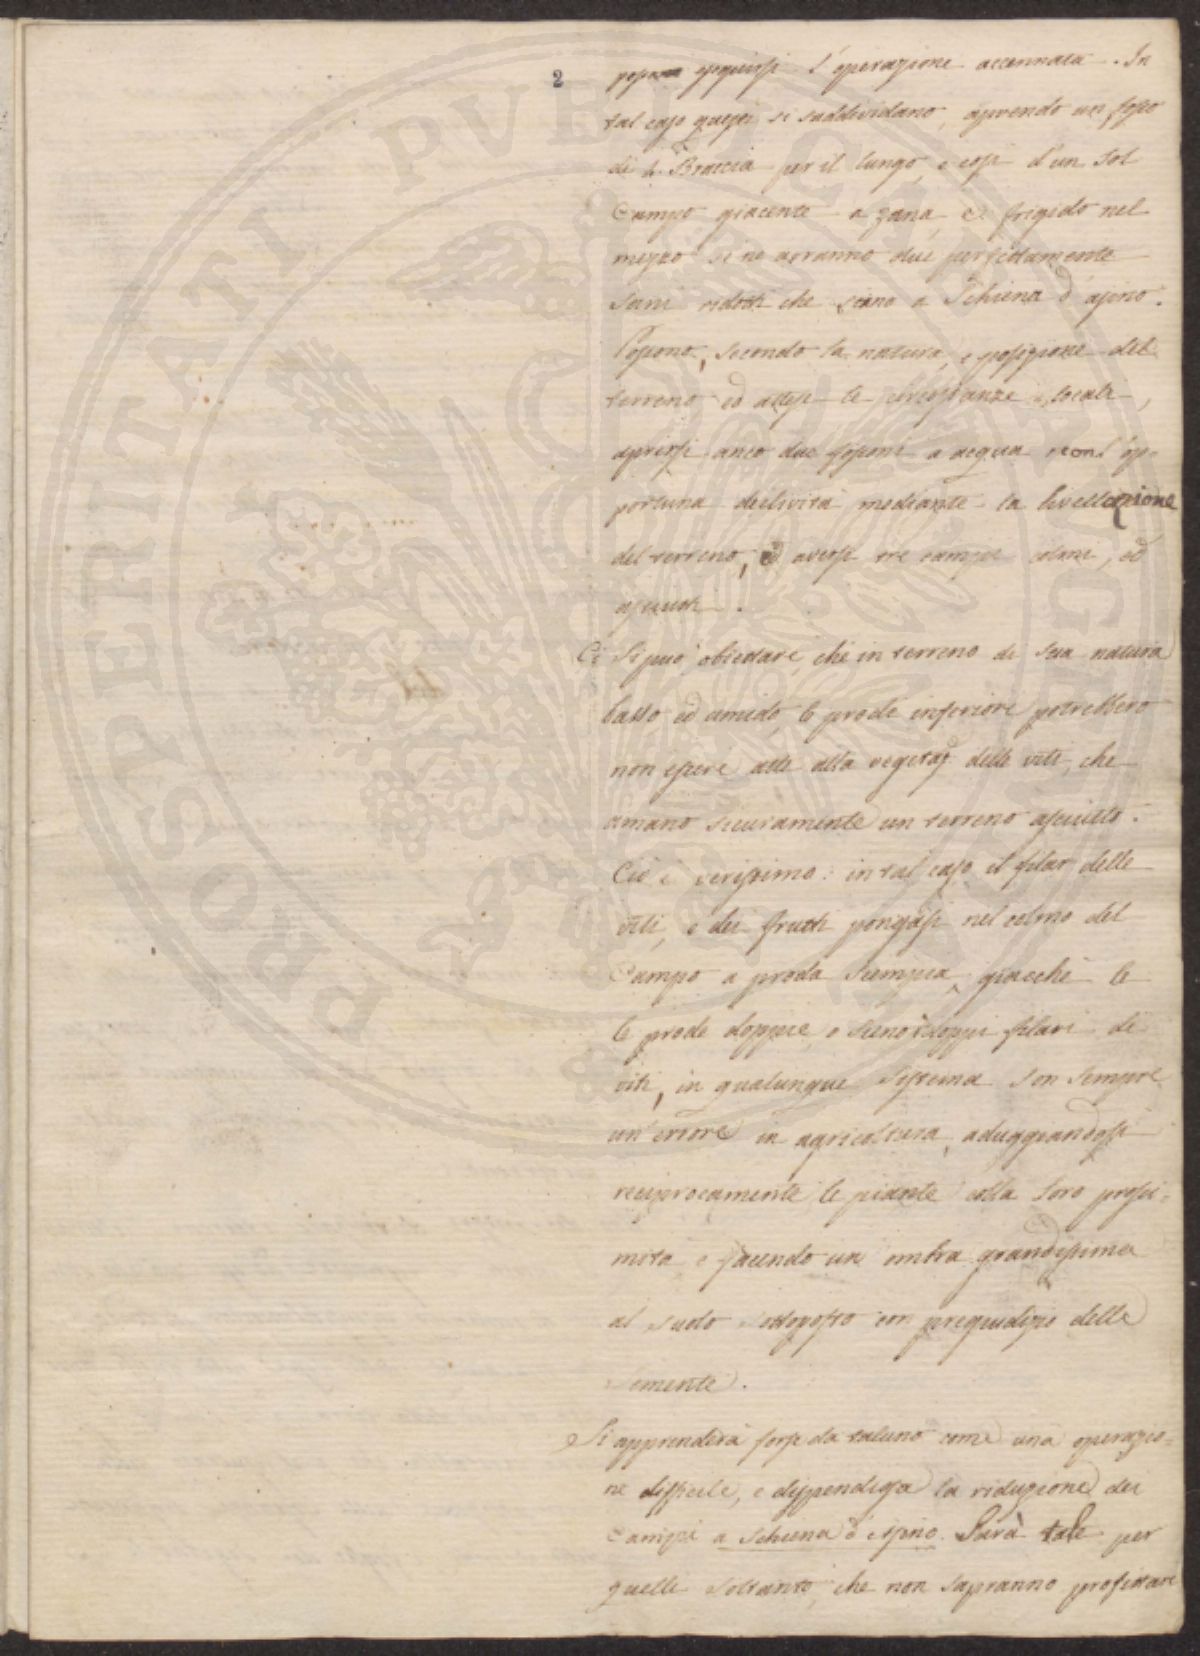 2
possa eseguirsi l'operazione accennata. In
tal caso questi si suddividano, aprendo un fosso
di 2. Braccia per il lungo, e così d'un sol
Campo giacente a zana, e frigido nel
mezzo se ne avranno due perfettamente
sani ridotti che siano a Schiena d'asino.
Possono, secondo la natura, e posizione del
terreno ed attese le circostanze locali,
aprirsi anco due fossoni a acqua con l'op=
portuna declività mediante la livellazione
del terreno, ed aversi tre campi colmi, ed
asciutti.
Ci si può obiettare, che in terreno di sua natura
basso ed umido, le prode inferiori potrebbero
non essere atte alla vegetaz.e delle viti, che
amano sicuramente un terreno asciutto.
Ciò è verissimo: in tal caso il filar delle
viti, e dei frutti pongasi nel colmo del
Campo a proda scempia, giacchè le
le prode doppie, o sieno doppi filari di
viti, in qualunque sistema son sempre
un'errore in agricoltura, aduggiandosi
reciprocamente le piante colla loro prossi=
mità, e facendo un ombra grandissima
al suolo sottoposto con pregiudizio delle
semente.
Si apprenderà forse da taluno come una operazio=
ne difficile, e dispendiosa la riduzione dei
Campi a Schiena d'Asino. Sarà tale per
quelli soltanto, che non sapranno profittare
PROSPERITATI PVBLICAE